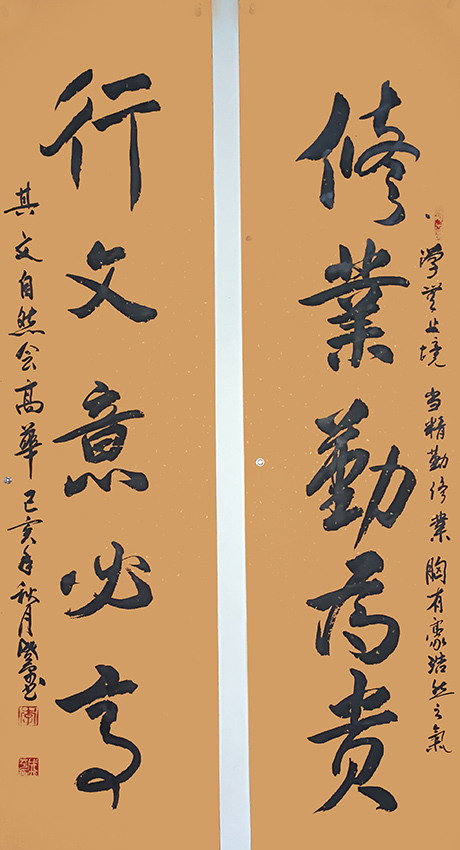 修業勤为贵
行文意必高
学无止境 当精勤修業 胸有豪浩然之氣
其文自然会高華 己亥年秋月